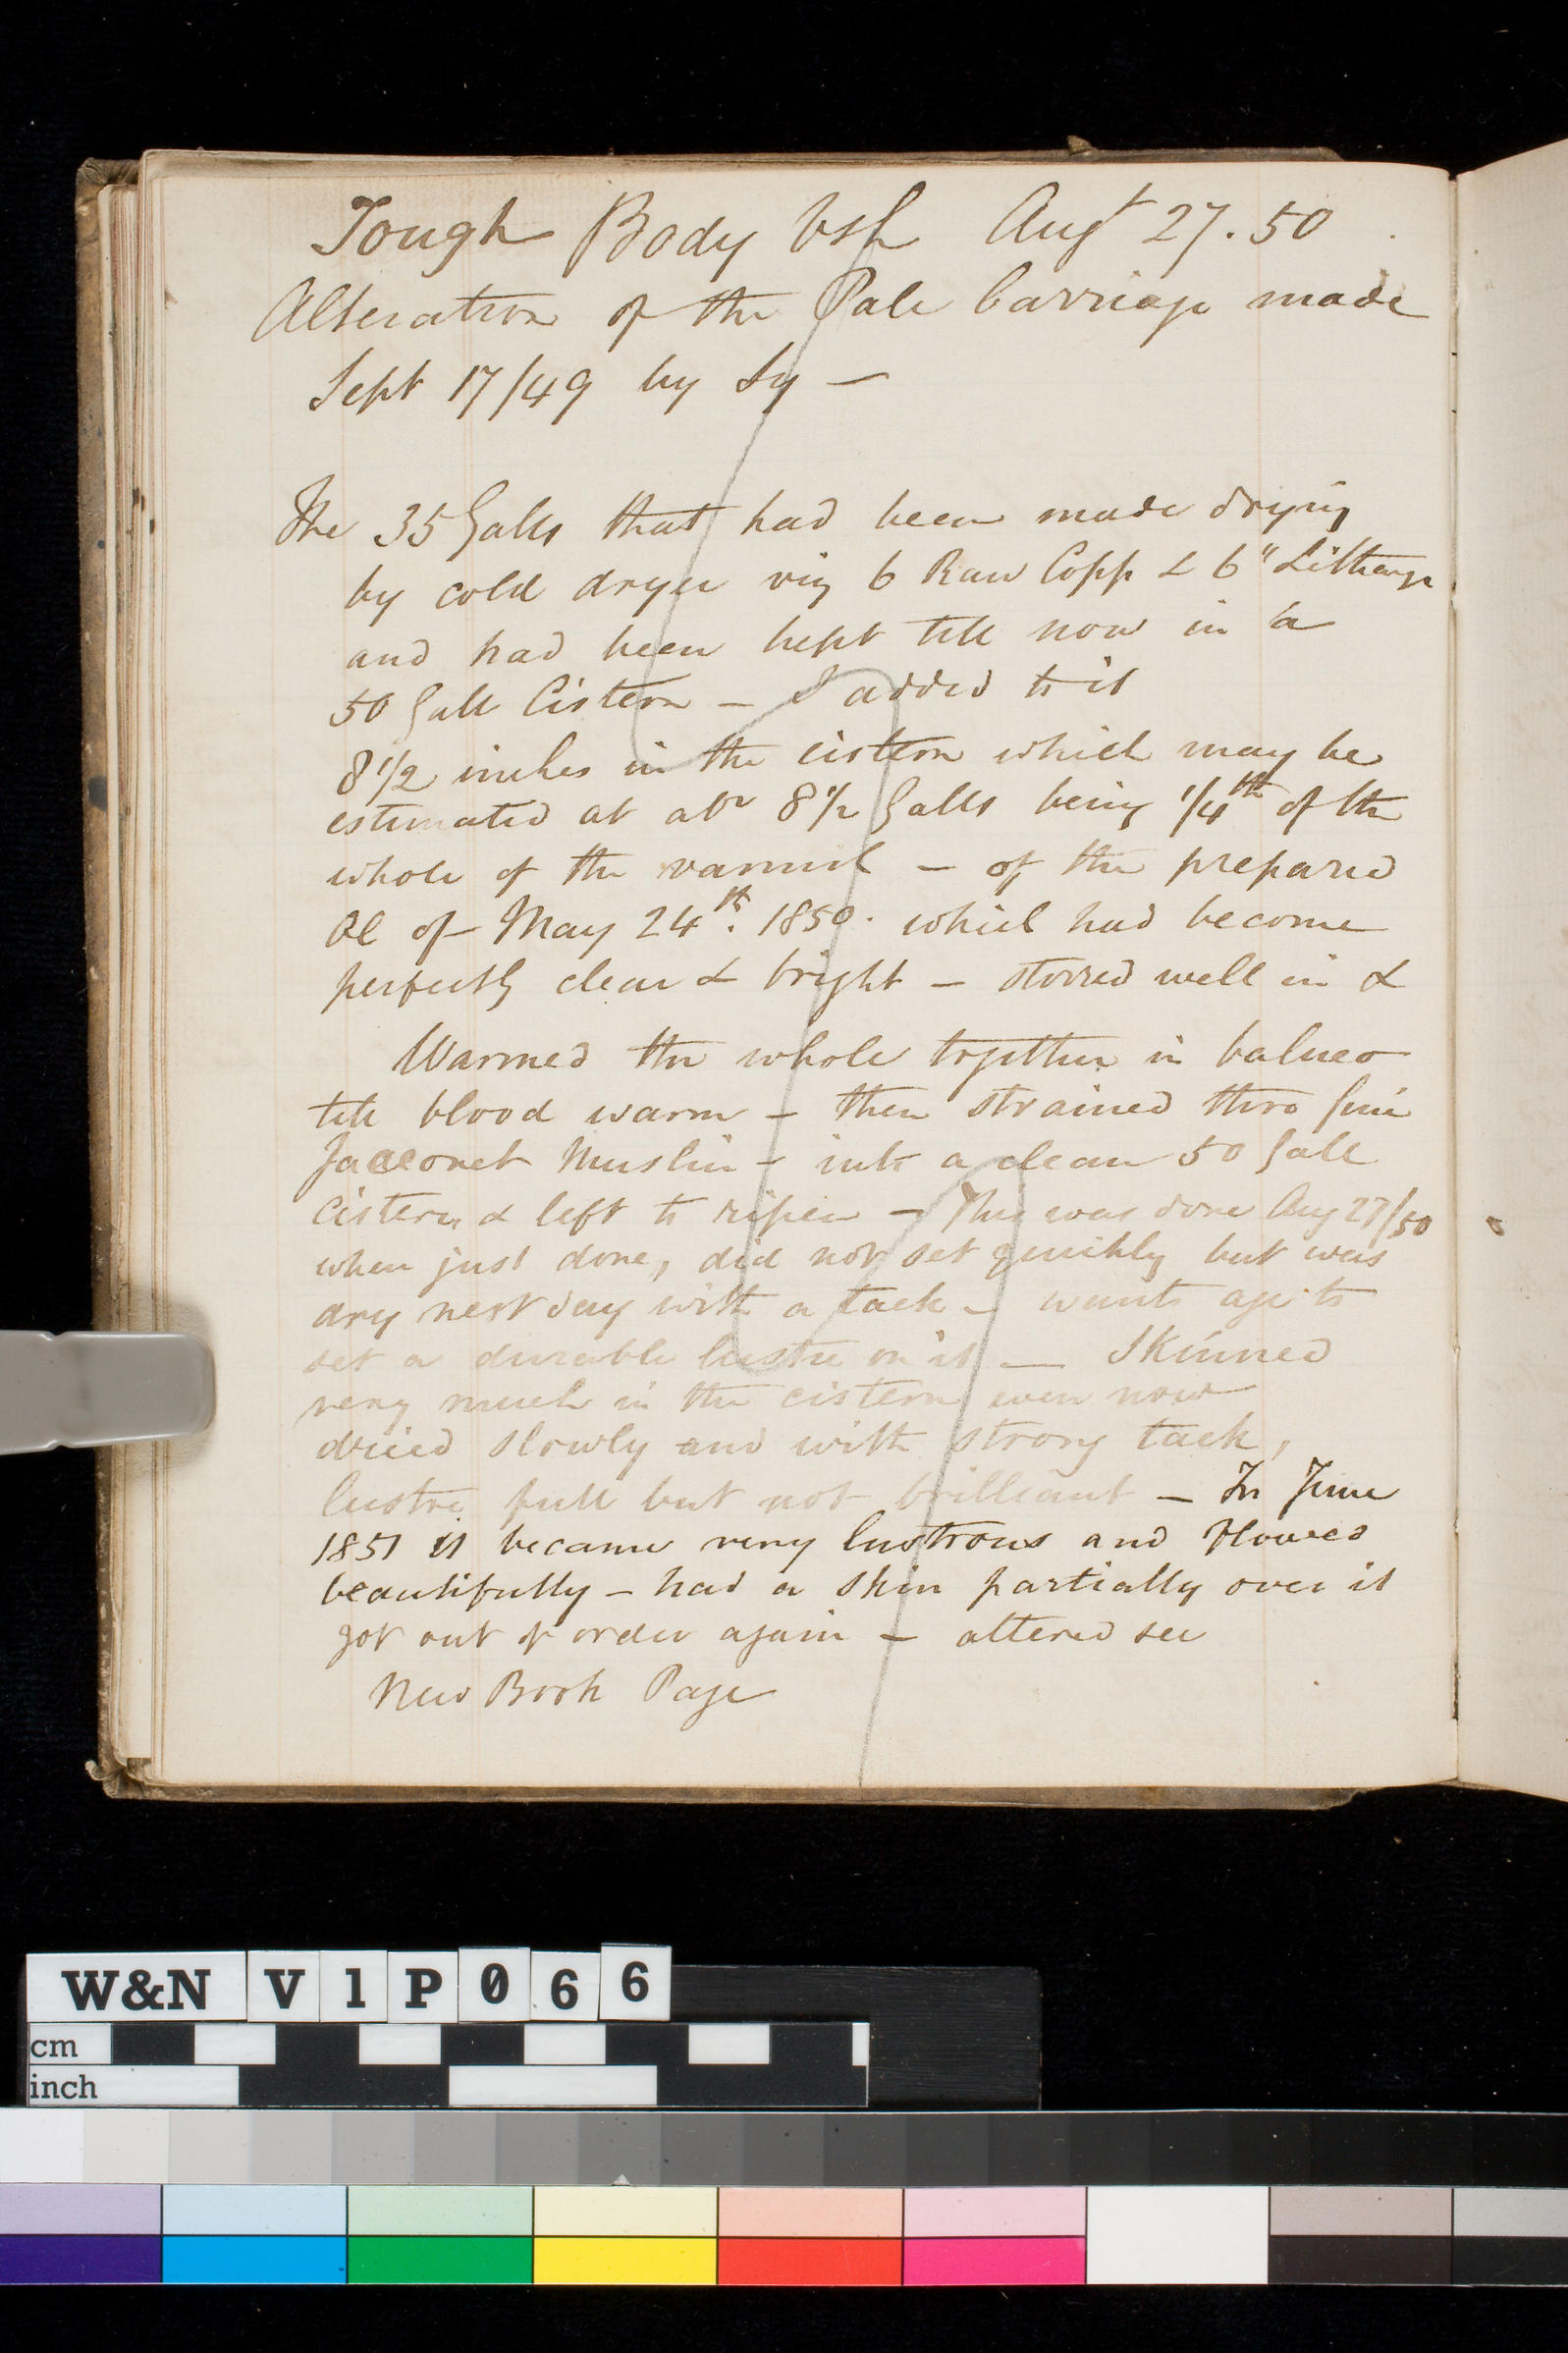 Tough Body Vsh Augt 27. 50
Alteration of the Pale Carriage made
Sept 17/49 by Sy —
The 35 Galls that had been made drying
by cold dryer viz 6 Raw Copp & 6 " Litharge
and had been kept till now in a
50 Gall Cistern — I added to it
8 1/2 inches in the cistern which may be
estimated at abt 8 1/2 Galls being 1/4th of the
whole of the varnish — of the prepared
Oil of May 24th. 1850. which had become
perfectly clear & bright — stirred well in &
Warmed the whole together in balneo
till blood warm — then strained thro fine
Jacconet Muslin — into a clean 50 Gall
Cistern & left to ripen — This was done Aug 27/50
when just done, did not set quickly but was
dry next day with a tack — wants age to
set a durable lustre on it — Skinned
very much in the cistern even now
dried slowly and with strong tack,
lustre full but not brilliant — In June
1851 it became very lustrous and flowed
beautifully — had a skin partially over it
got out of order again — altered see
New Book Page
W&N V1P066
cm
inch